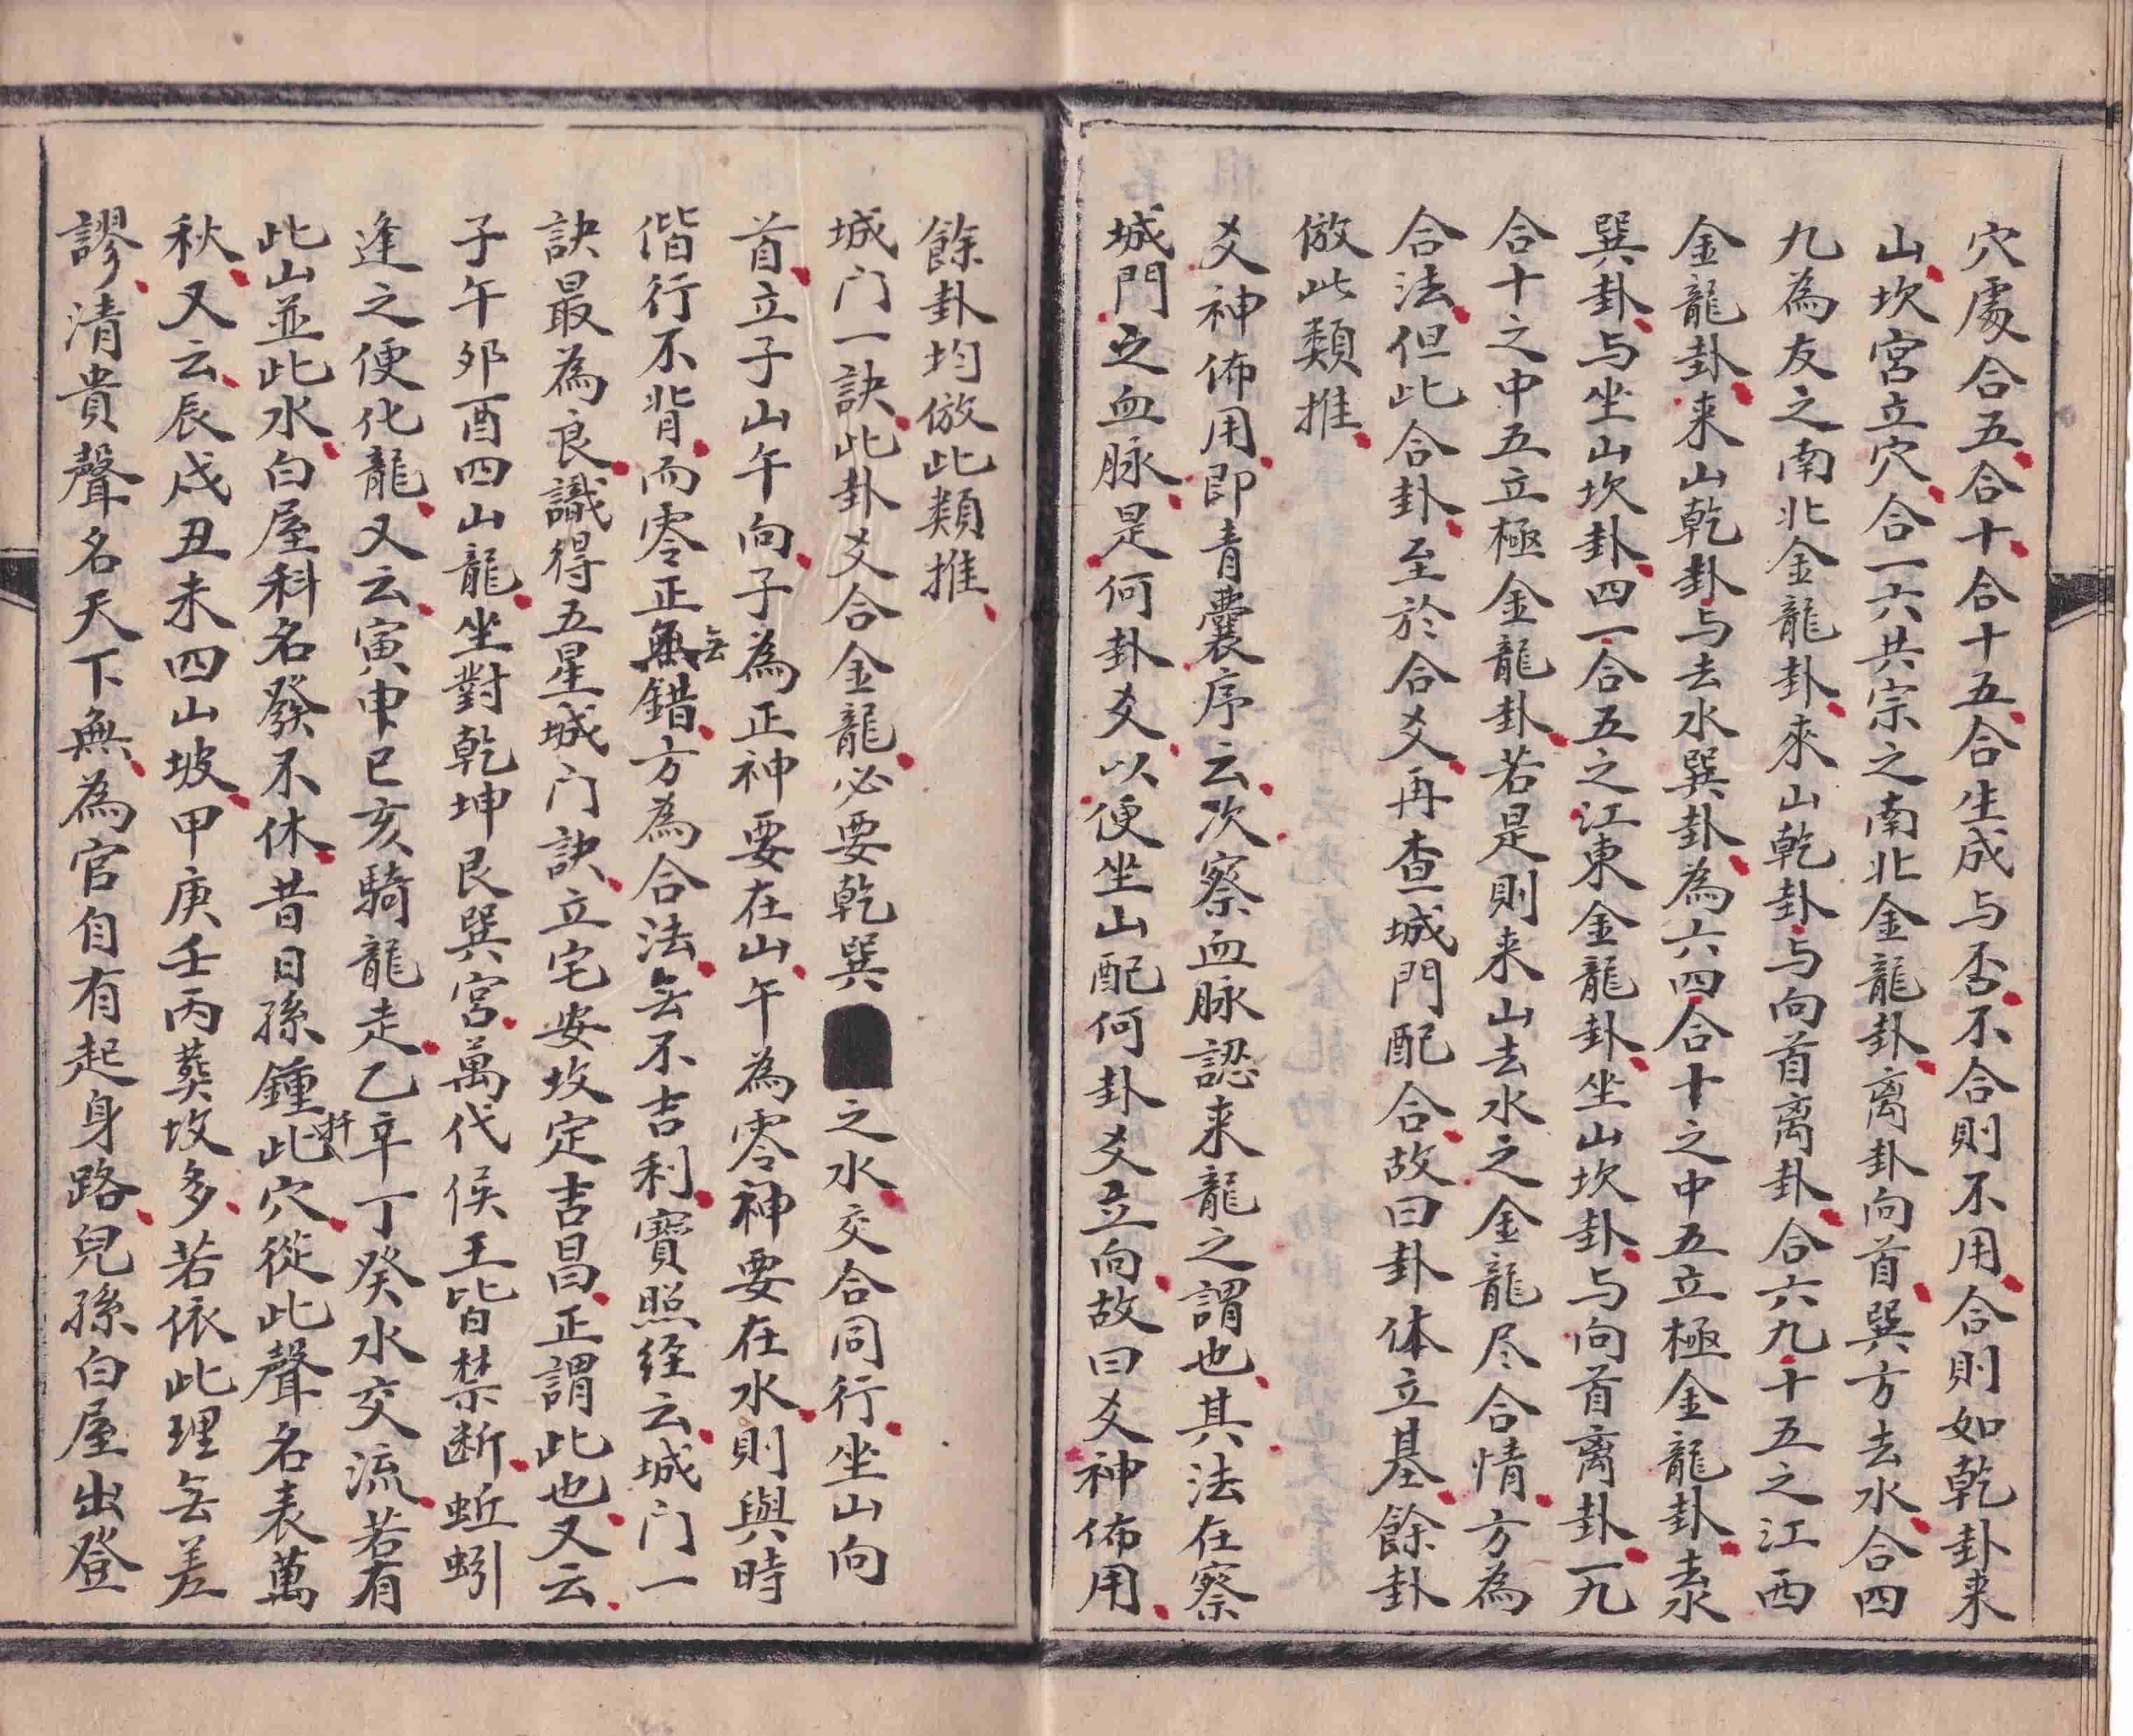 穴處合五合十合十五合生成与否不合則不用合則如乾卦来
山坎宮立穴合一六共宗之南北金龍卦离卦向首巽方去水合四
九為友之南北金龍卦來山乾卦与向首离卦合六九十五之江西
金龍卦来山乾卦与去水巽卦為六四合十之中五立極金龍卦去水
巽卦与坐山坎卦四一合五之江東金龍卦坐山坎卦与向首离卦一九
合十之中五立極金龍卦若是則来山去水之金龍尽合情方為
合法但此合卦至於合爻再查城門配合故曰卦体立基餘卦
倣此類推
爻神佈用即青囊序云次察血脉認来龍之謂也其法在察
城門之血脉是何卦爻以便坐山配何卦爻立向故曰爻神佈用
餘卦均倣此類推
城门一訣此卦爻合金龍必要乾巽之水交合同行坐山向
首立子山午向子為正神要在山午為零神要在水則與時
偕行不背而零正無錯方為合法無不吉利寶照经云城门一
訣最為良識得五星城门訣立宅安坟定吉昌正謂此也又云
子午夘酉四山龍坐對乾坤艮巽宮萬代侯王皆禁断蚯蚓
逢之便化龍又云寅申巳亥騎龍走乙辛丁癸水交流若有
此山並此水白屋科名發不休昔日孫鍾扦此穴從此聲名表萬
秋又云辰戌丑未四山坡甲庚壬丙葬坟多若依此理無差
謬清貴聲名天下無為官自有起身路兒孫白屋出登